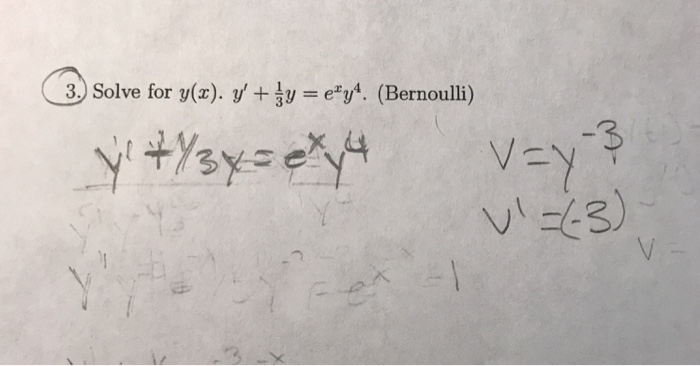 3. Solve for y(x). y′ + ⅓y = eˣy⁴. (Bernoulli)
y' + 1/3y = eˣy⁴
v = y⁻³
v' = (-3)
v =
= eˣ -1
-3 -x